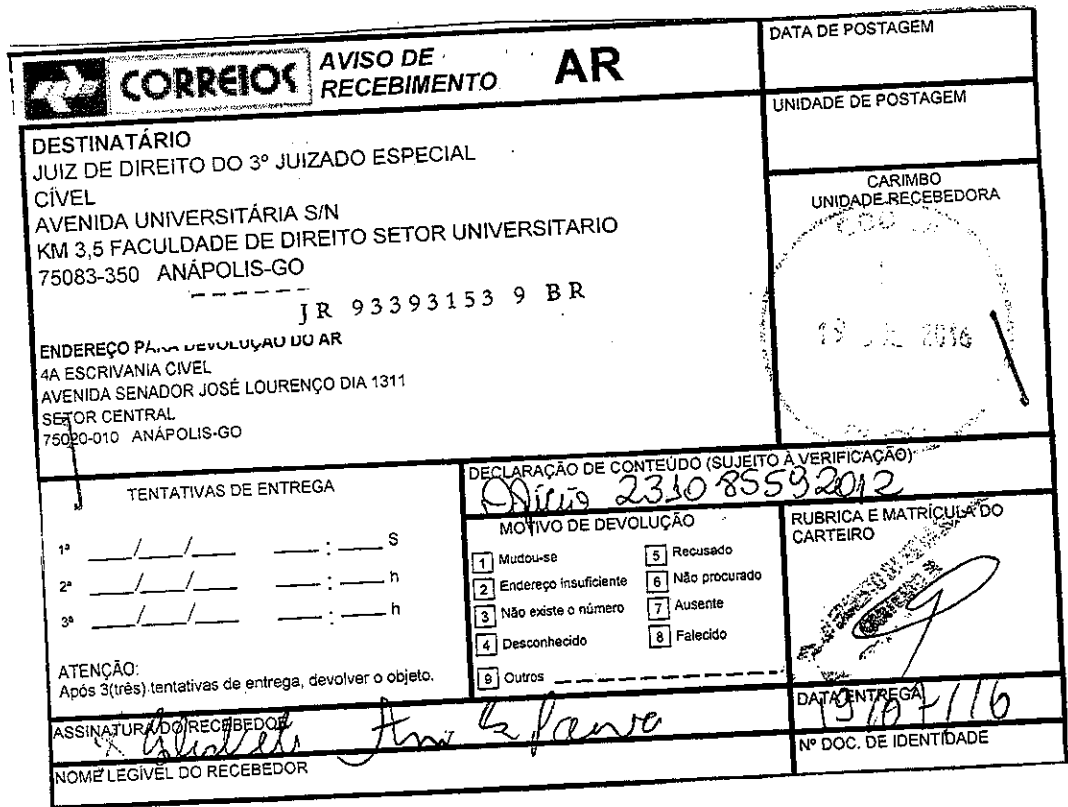 CORREIOS
AVISO DE
RECEBIMENTO
AR
DATA DE POSTAGEM
UNIDADE DE POSTAGEM
DESTINATÁRIO
JUIZ DE DIREITO DO 3º JUIZADO ESPECIAL
CÍVEL
AVENIDA UNIVERSITÁRIA S/N
KM 3,5 FACULDADE DE DIREITO SETOR UNIVERSITARIO
75083-350 ANÁPOLIS-GO
JR 93393153 9 BR
CARIMBO
UNIDADE RECEBEDORA
19 2016
ENDEREÇO PARA DEVOLUÇÃO DO AR
4A ESCRIVANIA CIVEL
AVENIDA SENADOR JOSÉ LOURENÇO DIA 1311
SETOR CENTRAL
75020-010 ANÁPOLIS-GO
TENTATIVAS DE ENTREGA
1ª ___/___/___ ___:___ S
2ª ___/___/___ ___:___ h
3ª ___/___/___ ___:___ h
ATENÇÃO:
Após 3(três) tentativas de entrega, devolver o objeto.
DECLARAÇÃO DE CONTEÚDO (SUJEITO À VERIFICAÇÃO)
Ofício 231085592012
MOTIVO DE DEVOLUÇÃO
1 Mudou-se
2 Endereço insuficiente
3 Não existe o número
4 Desconhecido
5 Recusado
6 Não procurado
7 Ausente
8 Falecido
9 Outros
RUBRICA E MATRÍCULA DO
CARTEIRO
ASSINATURA DO RECEBEDOR
DATA ENTREGA
19/07/16
NOME LEGÍVEL DO RECEBEDOR
Nº DOC. DE IDENTIDADE